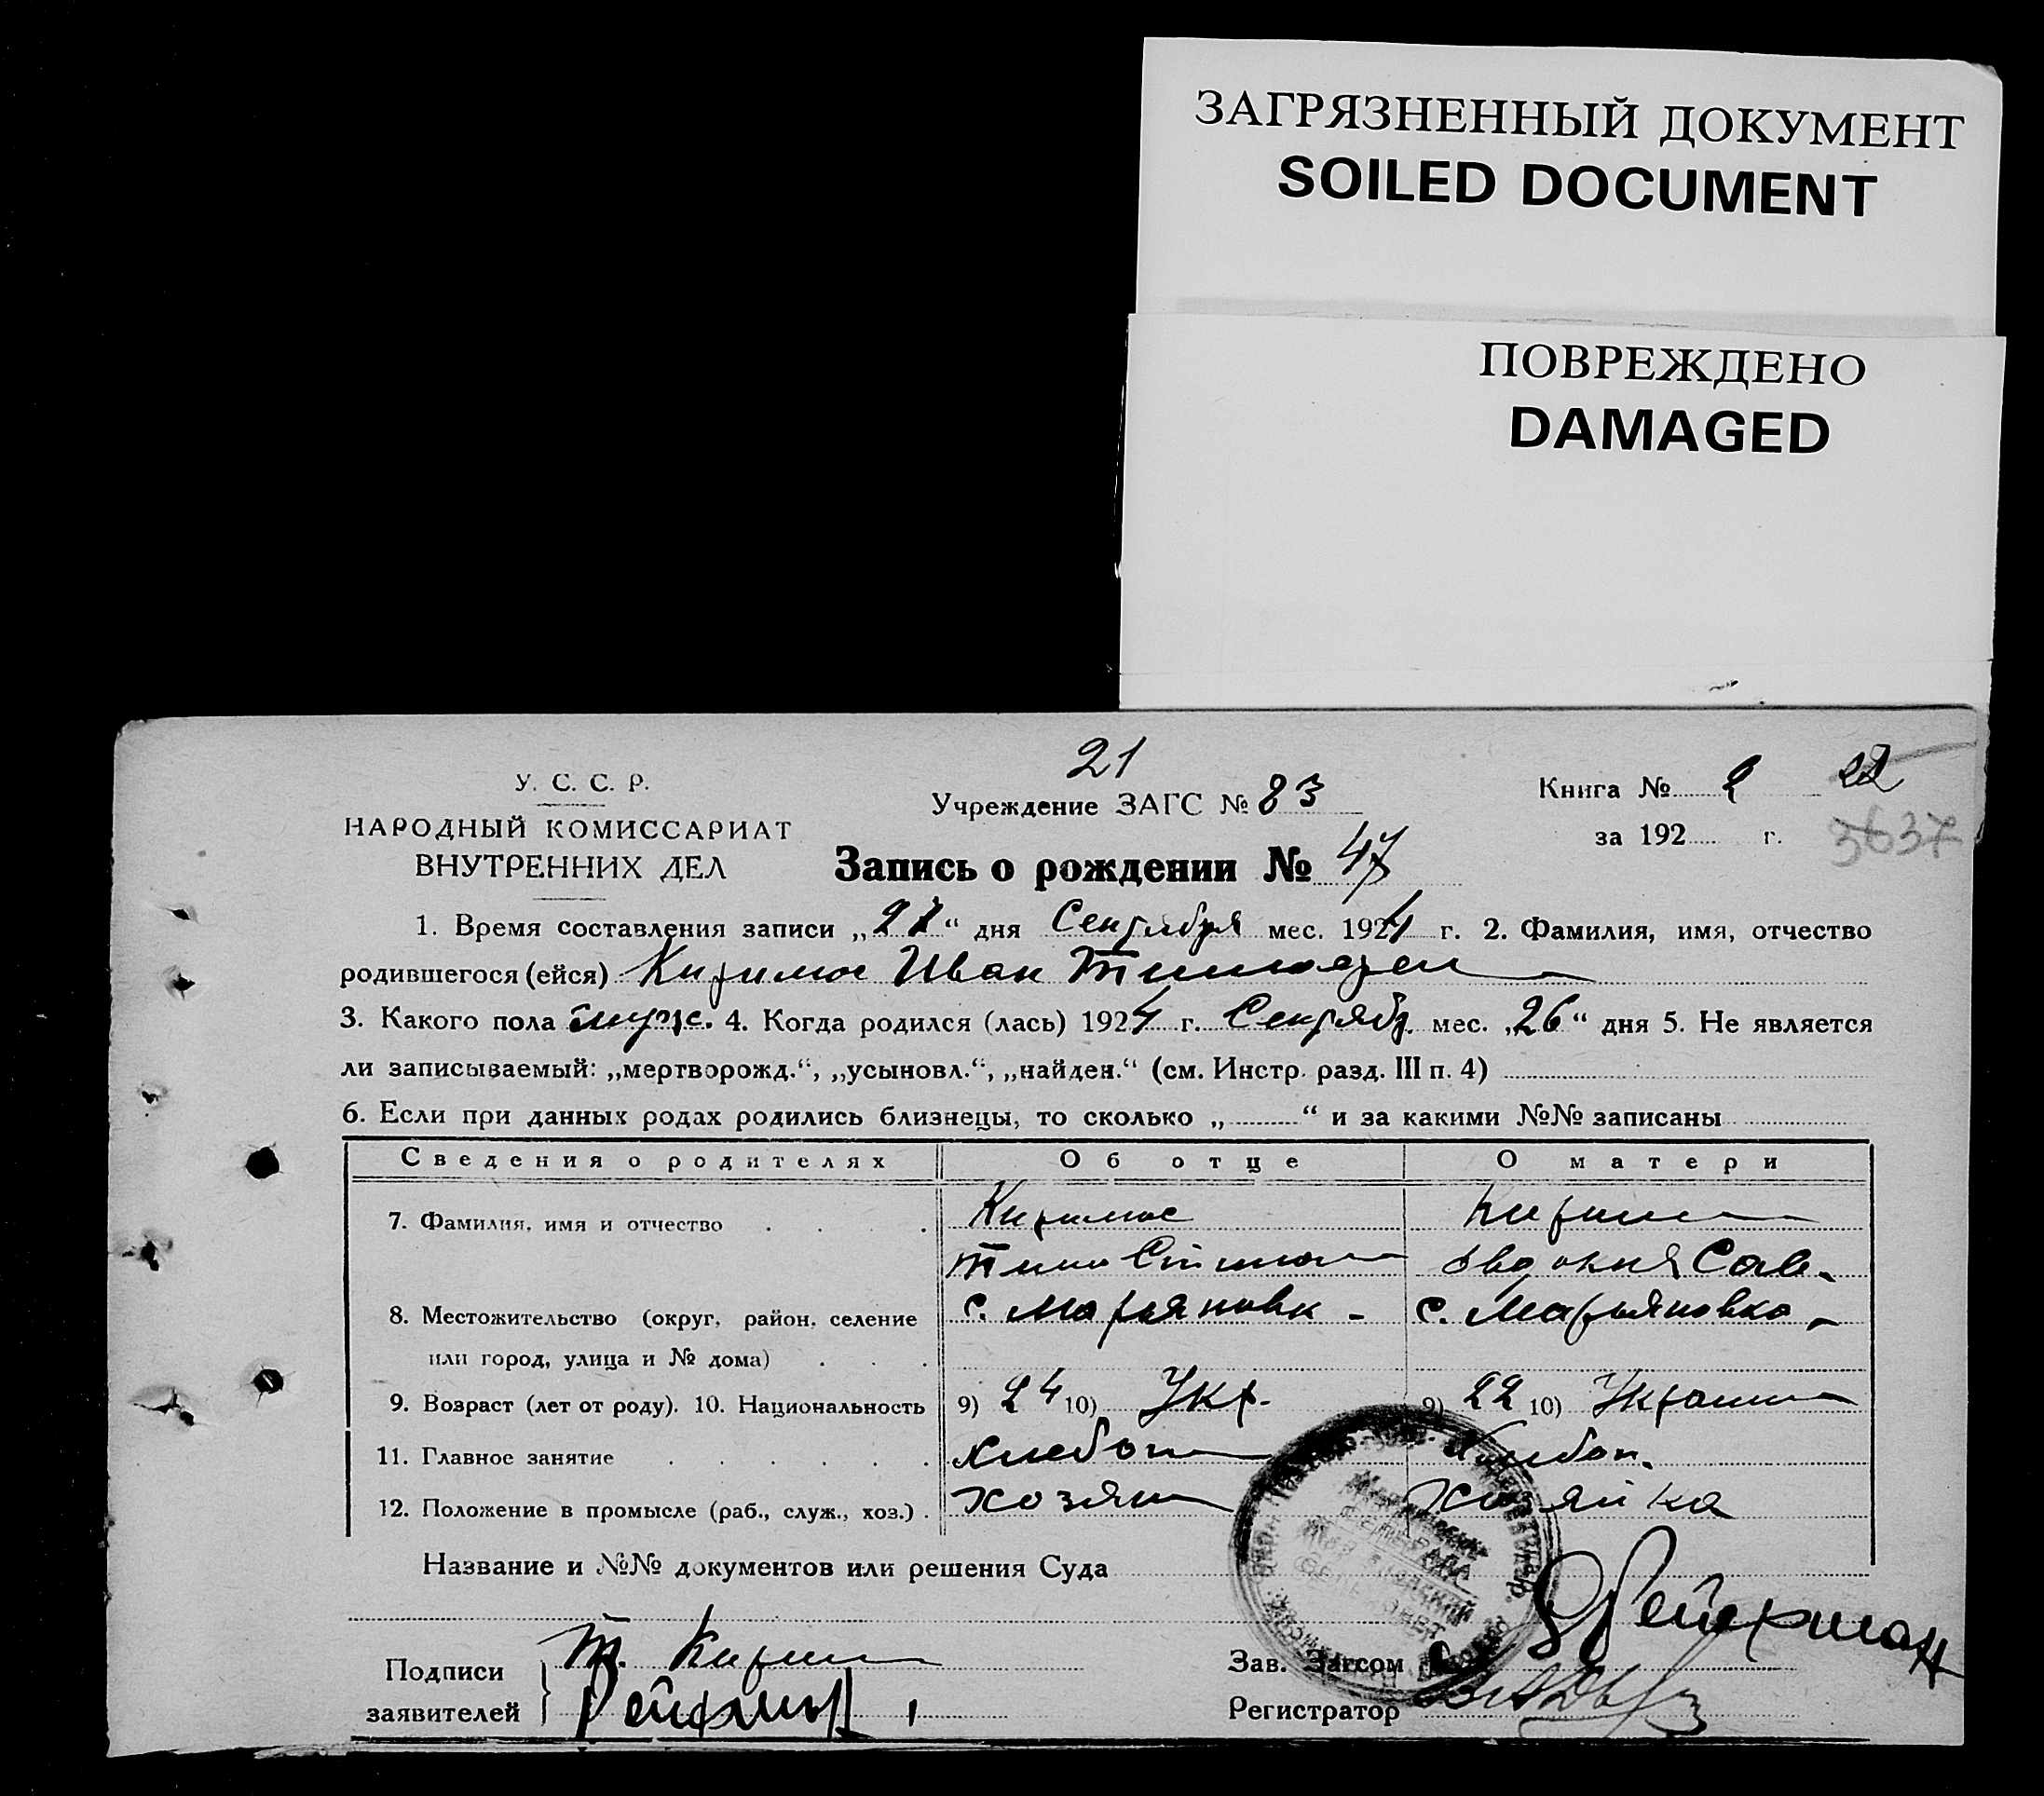 ЗАГРЯЗНЕННЫЙ ДОКУМЕНТ
SOILED DOCUMENT
ПОВРЕЖДЕНО
DAMAGED
21
У. С. С. Р.
НАРОДНЫЙ КОМИССАРИАТ
ВНУТРЕННИХ ДЕЛ
Учреждение ЗАГС № 83
Книга № 2 22
за 192 г. 3637
Запись о рождении № 47
1. Время составления записи „27“ дня Сентября мес. 1924 г. 2. Фамилия, имя, отчество
родившегося (ейся) Иван
3. Какого пола муж. 4. Когда родился (лась) 1924 г. Сентябр. мес. „26“ дня 5. Не является
ли записываемый: „мертворожд.“, „усыновл.“, „найден.“ (см. Инстр. разд. III п. 4)
6. Если при данных родах родились близнецы, то сколько „ “ и за какими №№ записаны
Сведения о родителях Об отце О матери
7. Фамилия, имя и отчество
Сав.
8. Местожительство (округ, район, селение с. Марьяновк с. Марьяновка
или город, улица и № дома)
9. Возраст (лет от роду). 10. Национальность 9) 24 10) Укр. 9) 22 10)
11. Главное занятие Хлебоп Хлебоп.
12. Положение в промысле (раб., служ., хоз.) хозяин хозяйка
Название и №№ документов или решения Суда
Подписи Т.
заявителей
Зав. Загсом
Регистратор